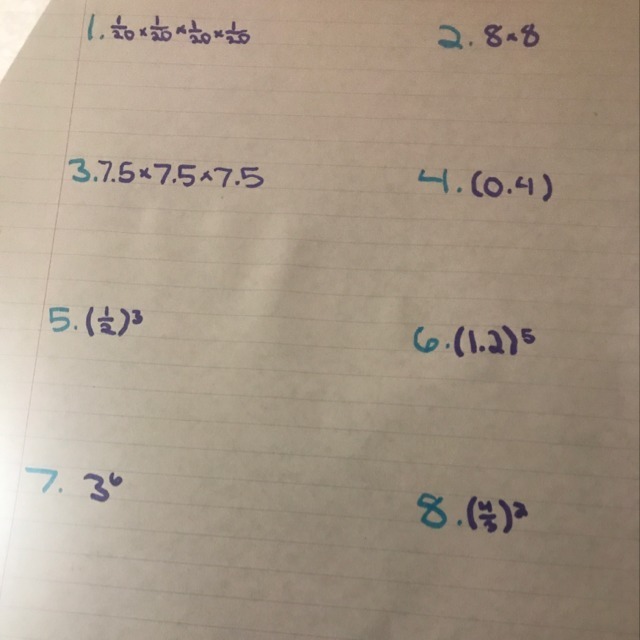 1. 1/20 × 1/20 × 1/20 × 1/20
2. 8×8
3. 7.5×7.5×7.5
4. (0.4)
5. (1/2)³
6. (1.2)⁵
7. 3⁶
8. (4/5)²